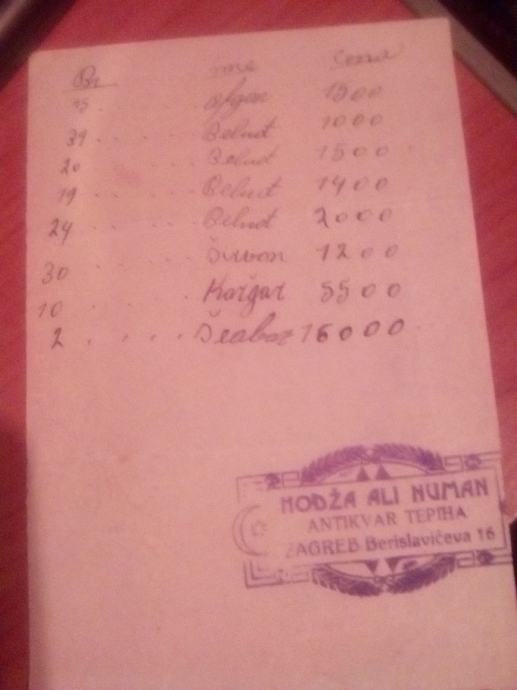 Br. ime Cena
15 . Afgan 1500
39 . . . . Belut 1000
20 . . . . . Belut 1500
19 . . . . . Belut 1400
24 . . . . . Belut 2000
30 . . . . . Širvan 1200
10 . . . . . Kašgar 5500
2 . . . . 16000
HODŽA ALI NUMAN
ANTIKVAR TEPIHA
ZAGREB Berislavićeva 16